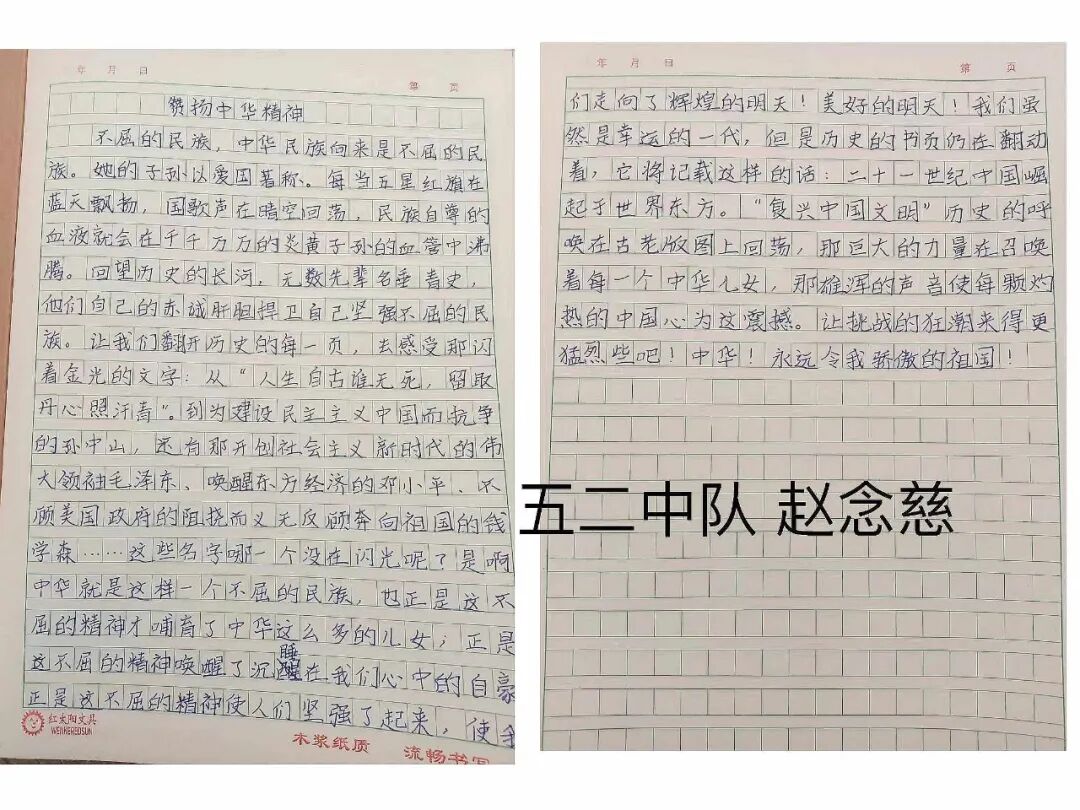 年 月 日
第 页
赞扬中华精神
不屈的民族，中华民族向来是不屈的民
族。她的子孙以爱国著称。每当五星红旗在
蓝天飘扬，国歌声在晴空回荡，民族自尊的
血液就会在千千万万的炎黄子孙的血管中沸
腾。回望历史的长河，无数先辈名垂青史，
他们自己的赤诚肝胆捍卫自己坚强不屈的民
族。让我们翻开历史的每一页，去感受那闪
着金光的文字：从“人生自古谁无死，留取
丹心照汗青”。到为建设民主主义中国而抗争
的孙中山，还有那开创社会主义新时代的伟
大领袖毛泽东、唤醒东方经济的邓小平、不
顾美国政府的阻挠而义无反顾奔向祖国的钱
学森……这些名字哪一个没在闪光呢？是啊
中华就是这样一个不屈的民族，也正是这不
屈的精神才哺育了中华这么多的儿女；正是
这不屈的精神唤醒了沉睡在我们心中的自豪
正是这不屈的精神使人们坚强了起来，使我
红太阳文具
WENKEREDSUN
木浆纸质 流畅书写
年 月 日
第 页
们走向了辉煌的明天！美好的明天！我们虽
然是幸运的一代，但是历史的书页仍在翻动
着，它将记载这样的话：二十一世纪中国崛
起于世界东方。“复兴中国文明”历史的呼
唤在古老版图上回荡，那巨大的力量在召唤
着每一个中华儿女，那雄浑的声音使每颗灼
热的中国心为这震撼。让挑战的狂潮来得更
猛烈些吧！中华！永远令我骄傲的祖国！
五二中队 赵念慈